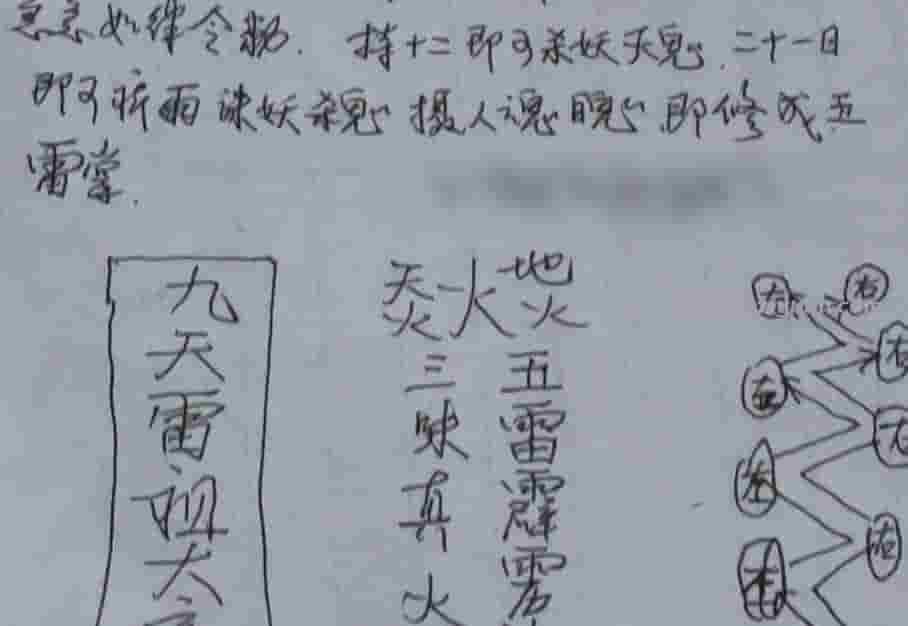 急急如律令敕. 持十二即可杀妖灭鬼.二十一日
即可祈雨诛妖杀鬼 摄人魂魄.即修成五
雷掌.
九天雷祖大
火 地火
三昧真火
五雷霹雳
左 右
右
左
左
右